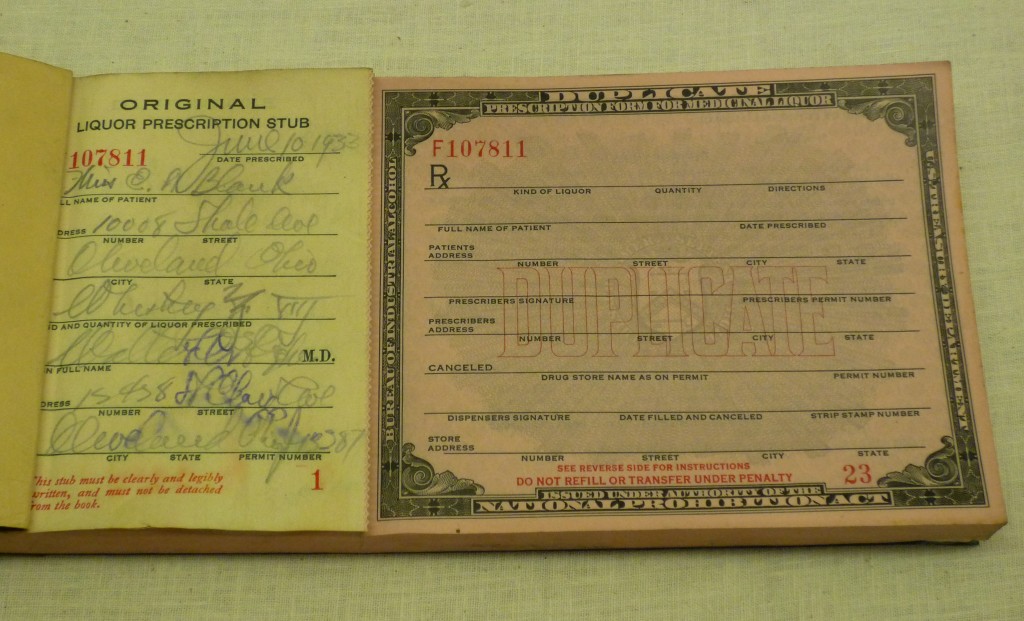 ORIGINAL
LIQUOR PRESCRIPTION STUB
June 10 193
107811
DATE PRESCRIBED
Miss E. Blank
LL NAME OF PATIENT
DRESS 10008 Ave
NUMBER STREET
Cleveland Ohio
CITY STATE
Whiskey
D AND QUANTITY OF LIQUOR PRESCRIBED
M.D.
N FULL NAME
DRESS 15438 St Clair Ave
NUMBER STREET
Cleveland
CITY STATE PERMIT NUMBER
This stub must be clearly and legibly
written, and must not be detached
from the book.
1
DUPLICATE
PRESCRIPTION FORM FOR MEDICINAL LIQUOR
BUREAU OF INDUSTRIAL ALCOHOL
U.S. TREASURY DEPARTMENT
F107811
Rx
KIND OF LIQUOR QUANTITY DIRECTIONS
FULL NAME OF PATIENT DATE PRESCRIBED
PATIENTS
ADDRESS
NUMBER STREET CITY STATE
DUPLICATE
PRESCRIBERS SIGNATURE PRESCRIBERS PERMIT NUMBER
PRESCRIBERS
ADDRESS
NUMBER STREET CITY STATE
CANCELED
DRUG STORE NAME AS ON PERMIT PERMIT NUMBER
DISPENSERS SIGNATURE DATE FILLED AND CANCELED STRIP STAMP NUMBER
STORE
ADDRESS
NUMBER STREET CITY STATE
SEE REVERSE SIDE FOR INSTRUCTIONS
DO NOT REFILL OR TRANSFER UNDER PENALTY
23
ISSUED UNDER AUTHORITY OF THE
NATIONAL PROHIBITION ACT